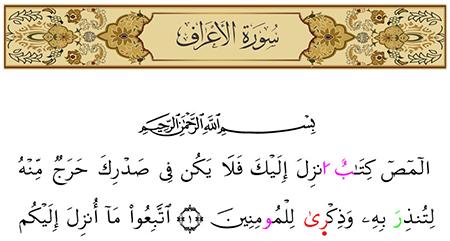 سُورَةُ الأَعْرَافِ
بِسْمِ اللَّهِ الرَّحْمَٰنِ الرَّحِيمِ
الٓمٓصٓ كِتَٰبٌ ا۟نزِلَ إِلَيْكَ فَلَا يَكُن فِى صَدْرِكَ حَرَجٌ مِّنْهُ
لِتُنذِرَ بِهِۦ وَذِكْرِىٰ لِلْمُومِنِينَ ۝١ ٱتَّبِعُوا۟ مَآ أُنزِلَ إِلَيْكُم